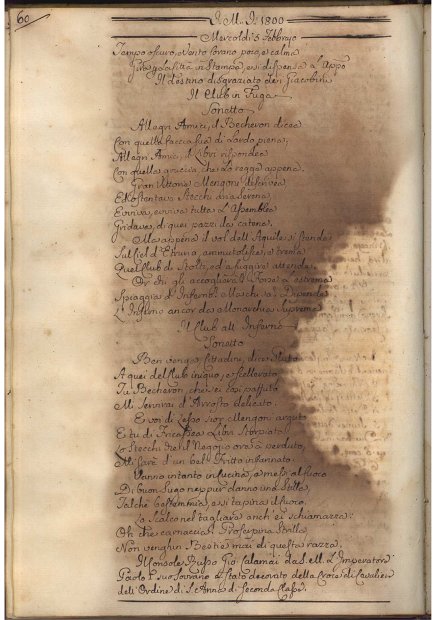 60
I. M. I. 1800
Mercoldì 5 Febbrajo
Tempo oscuro, e Vento Sovano poco, e calma
Gira p la Città in Stampa, e si dispensa a Uffo
Il destino disgraziato dei Giacobini
Il Club in Fuga
Sonetto
Allegri Amici, il Becheroni dicea
Con quella faccia sua di lardo piena;
Allegri Amici, il Libri rispondea
Con quella gruccia che lo regge appena.
Gran Vittoria Mengoni
Ed ostentava Stecchi aria Serena,
Evviva, evviva tutta l'Assemblea
Gridava, di quei pazzi da catena,
Ma appena il vol dell'Aquile si stende
Sul Ciel d'Etruria, ammutolisce, e trema
Quel Club di Stolti, ed a fuggire attende,
Or chi gli accoglierà? Forse la estrema
Spiaggia d'Inferno? Ma chi và? Difende
L'Inferno ancor da Monarchia Suprema
Il Club all'Inferno
Sonetto
Ben venga, Cittadini, dice Pluto
A quei del Club iniquo, e scellerato
Tu Becheron, che sei così paffuto
Mi servirai d'Arrosto delicato.
E voi di Lesso Sior Mengoni arguto
E tu di Fricassea Libri Storpiato
Lo Stecchi che il Negozio ora à perduto,
Mi farà d'un bel Fritto infarinato
Vanno intanto in Cucina, e messi al fuoco
Di buon Sugo neppur danno una Stilla,
Talchè bestemmia, e si tapina il Cuoco,
Lo Scalco nel tagliare anch'ei schiamazza:
Oh che carnaccia! Proserpina Strilla
Non venghin Bestie mai di questa razza.
Il Console Russo Gio Calamai da S. M. L'Imperatore
Paolo I suo Sovrano è Stato decorato della Croce di Cavaliere
dell'Ordine di S. Anna di Seconda Classe.